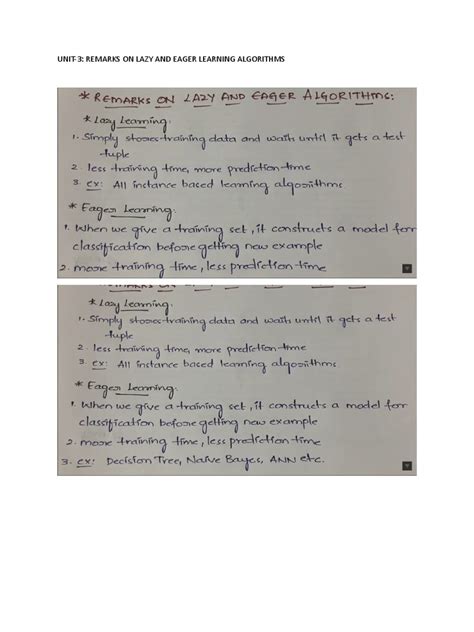 UNIT-3: REMARKS ON LAZY AND EAGER LEARNING ALGORITHMS
* REMARKS ON LAZY AND EAGER ALGORITHMS:
* Lazy Learning:
1. Simply stores training data and waits until it gets a test
tuple
2. less training time, more prediction time
3. ex: All instance based learning algorithms.
* Eager Learning:
1. When we give a training set, it constructs a model for
classification before getting new example
2. more training time, less prediction time
* Lazy Learning:
1. Simply stores training data and waits until it gets a test
tuple
2. less training time, more prediction time
3. ex: All instance based learning algorithms.
* Eager Learning:
1. When we give a training set, it constructs a model for
classification before getting new example
2. more training time, less prediction time
3. ex: Decision Tree, Naive Bayes, ANN etc.